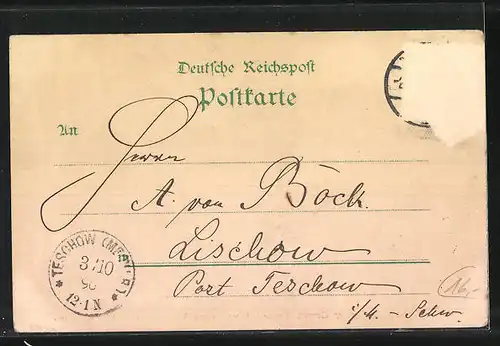 Deutsche Reichspost
Postkarte
An
Herrn
A. von Böck.
Lischow
Port Teschow
i/M - Schw.
TESCHOW
3/10
12-1N
16,-